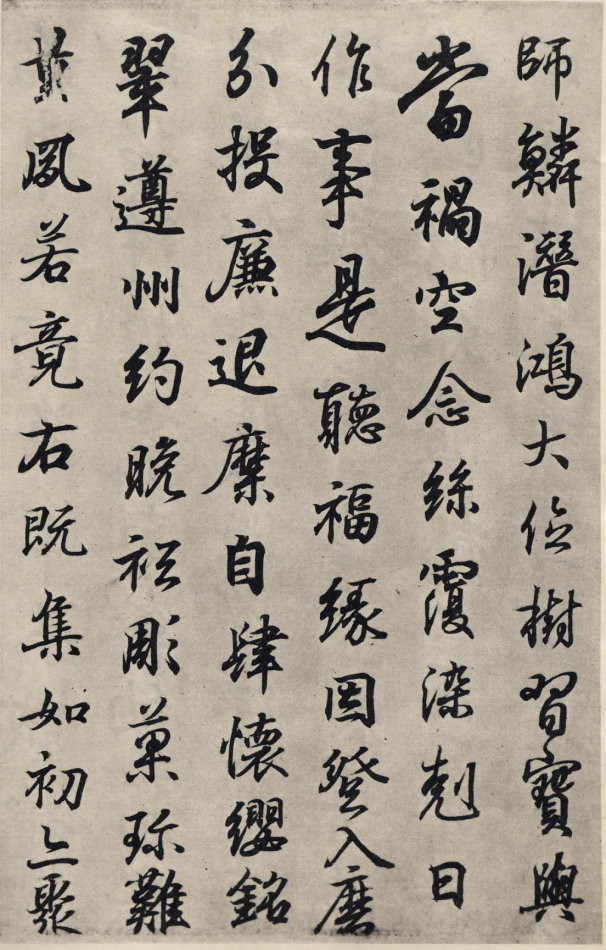 師鱗潛鴻大位樹習寶與
當禍空念絲覆染剋曰
作事是聽福緣因登入
分投廉退縻自肆懷纓銘
翠遵州約晚彫菓珍難
鳳若竟右既集如初亦聚